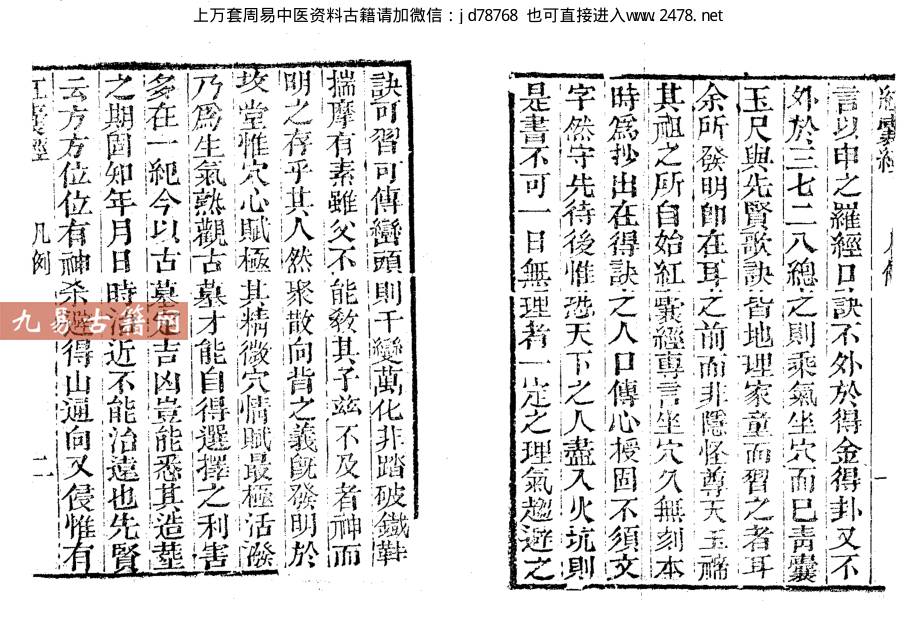 上万套周易中医资料古籍请加微信：jd78768 也可直接进入www.2478.net
言以申之羅經口訣不外於得金得卦又不
外於三七二八總之則乘氣坐穴而已靑囊
玉尺與先賢歌訣皆地理家童而習之者耳
余所發明卽在耳之前而非隱怪尊天玉
其祖之所自始紅囊經專言坐穴久無刻本
時爲抄出在得訣之人口傳心授固不須文
字然守先待後惟恐天下之人盡入火坑則
是書不可一日無理者一定之理氣趨避之
訣可習可傳巒頭則千變萬化非踏破鐵鞋
揣摩有素雖父不能敎其子兹不及者神而
明之存乎其人然聚散向背之義旣發明於
堂惟穴心賦極其精微穴情賦最極活潑
乃爲生氣熟觀古墓才能自得選擇之利害
多在一紀今以古墓定吉凶豈能悉其造塟
之期固知年月日時治近不能治遠也先賢
云方方位位有神杀避得山通向又侵惟有
紅囊經 凡例 二
九易古籍网